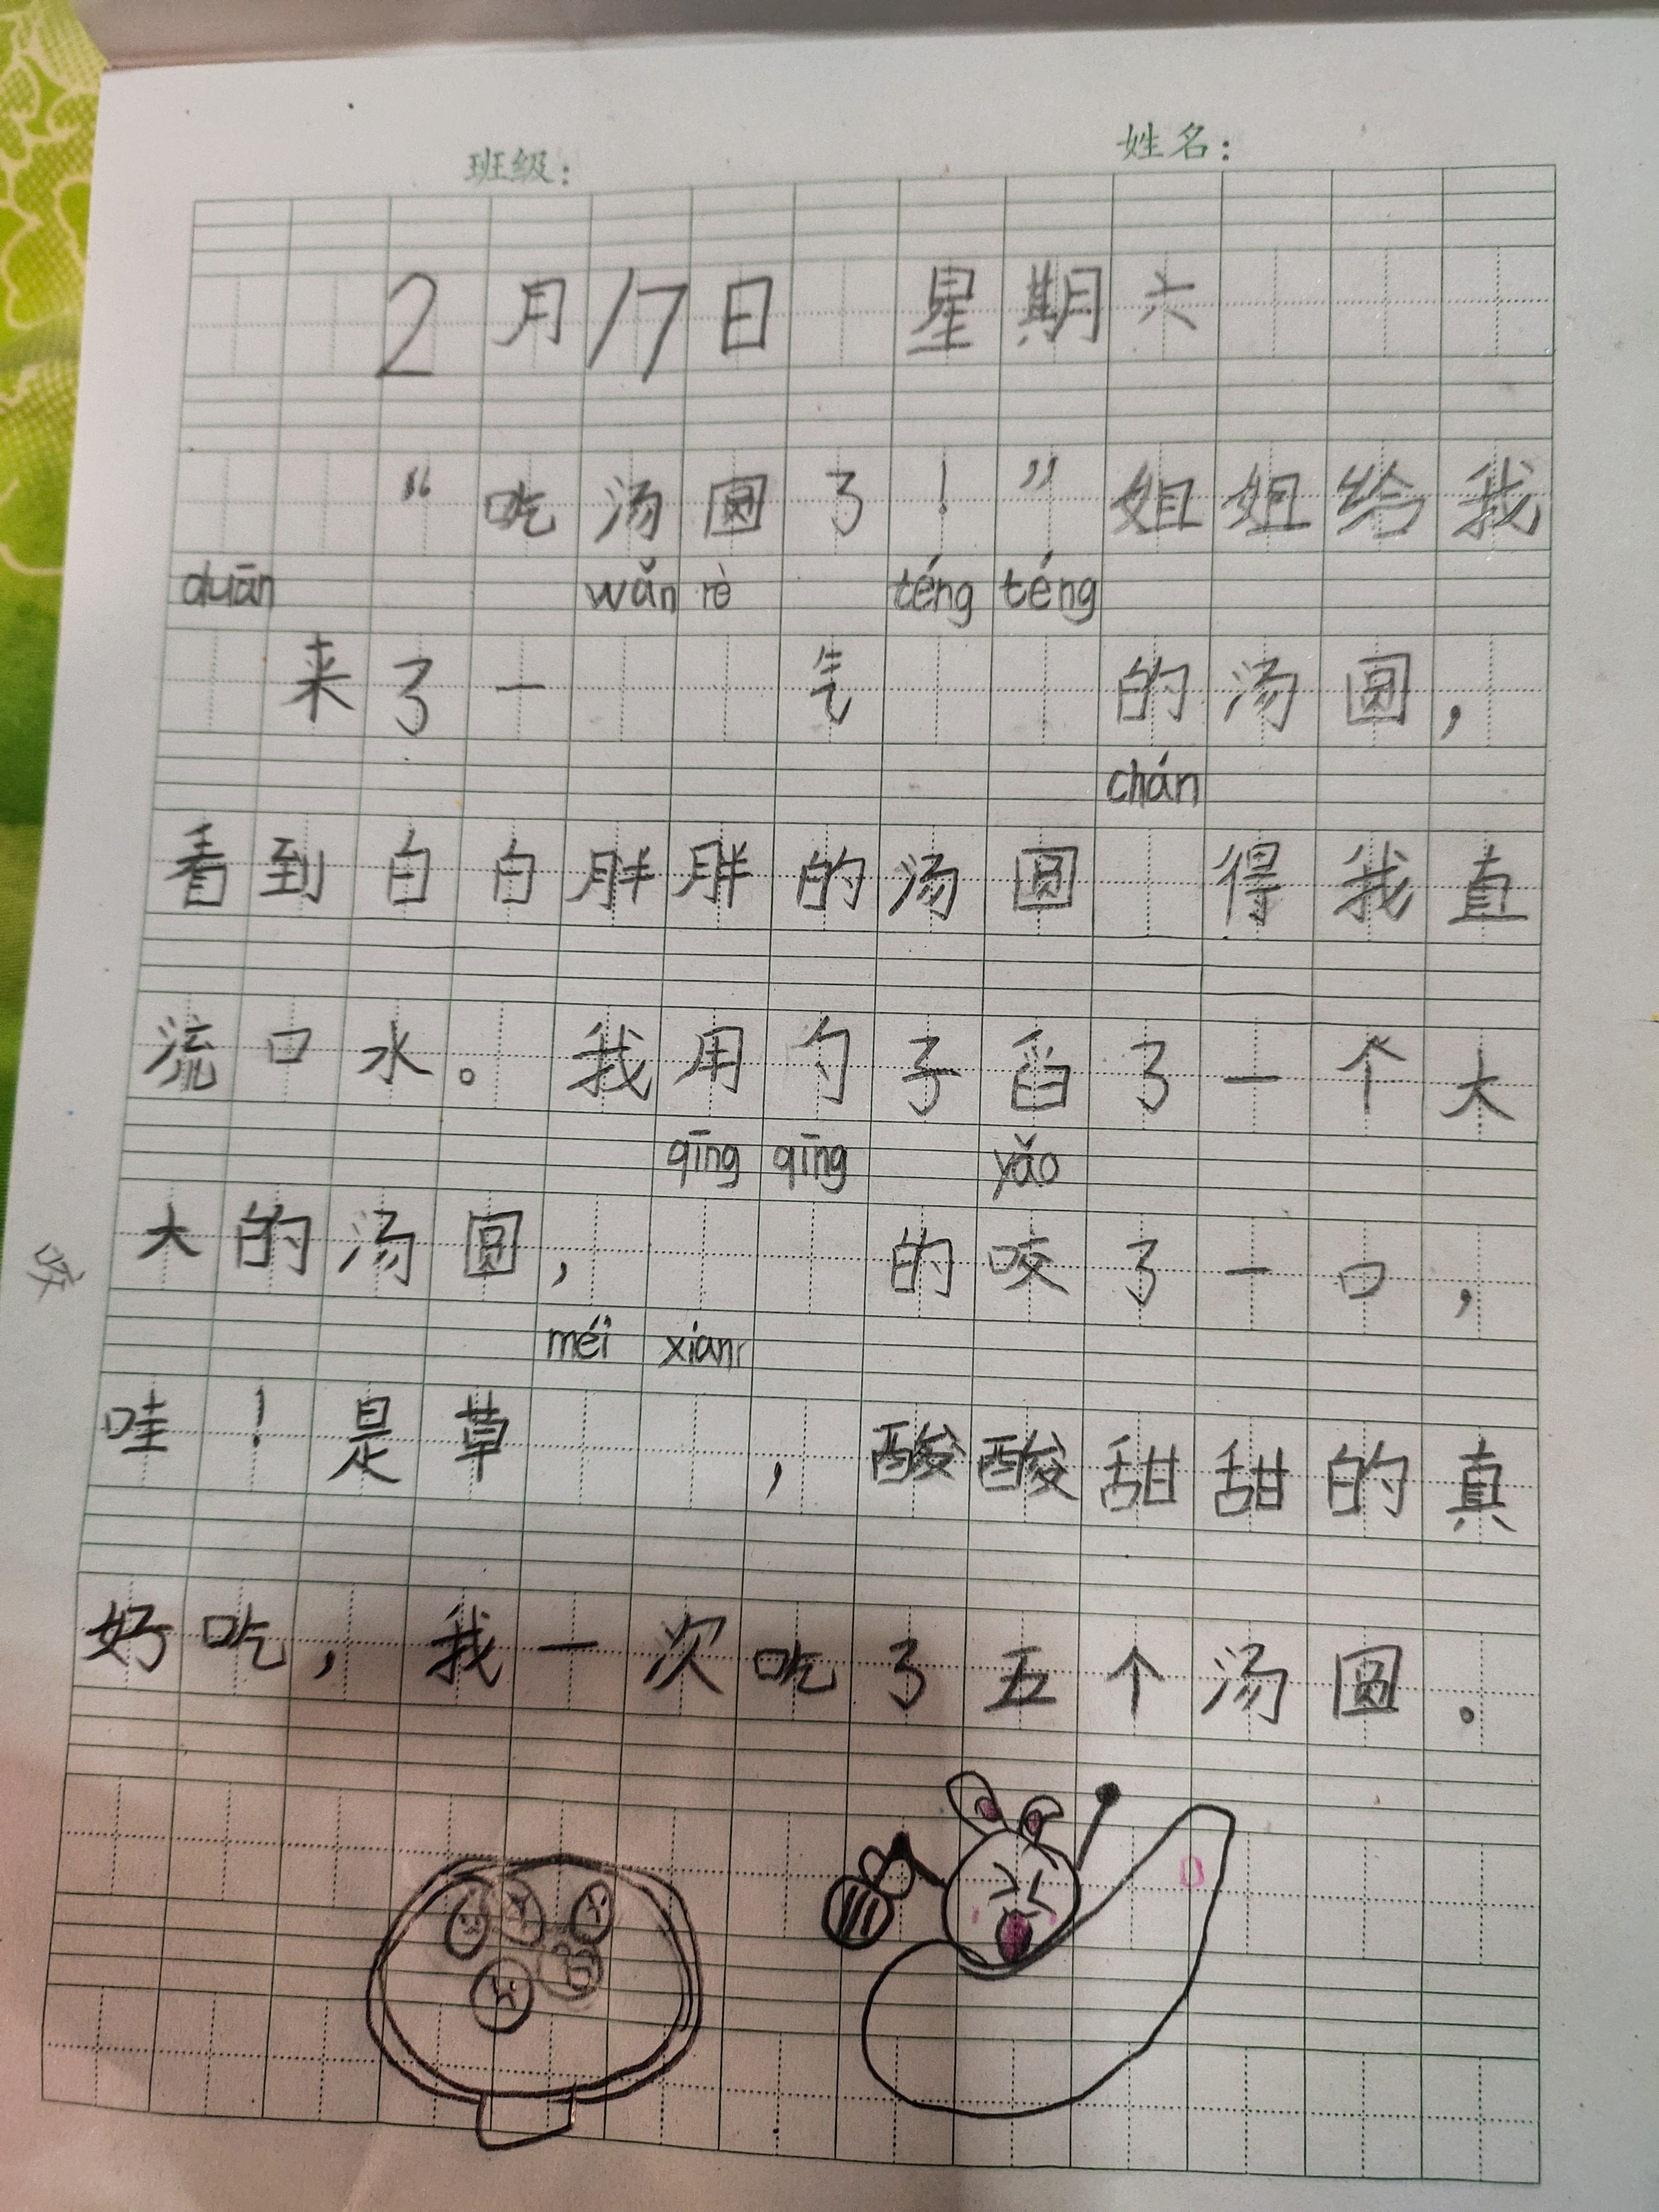 班级： 姓名：
2月17日 星期六
“吃汤圆了！”姐姐给我
duān wǎn rè téng téng
来了一 气 的汤圆，
chán
看到白白胖胖的汤圆 得我直
流口水。我用勺子舀了一个大
qīng qīng yǎo
大的汤圆， 的咬了一口，
咬
méi xian
哇！是草 ，酸酸甜甜的真
好吃，我一次吃了五个汤圆。